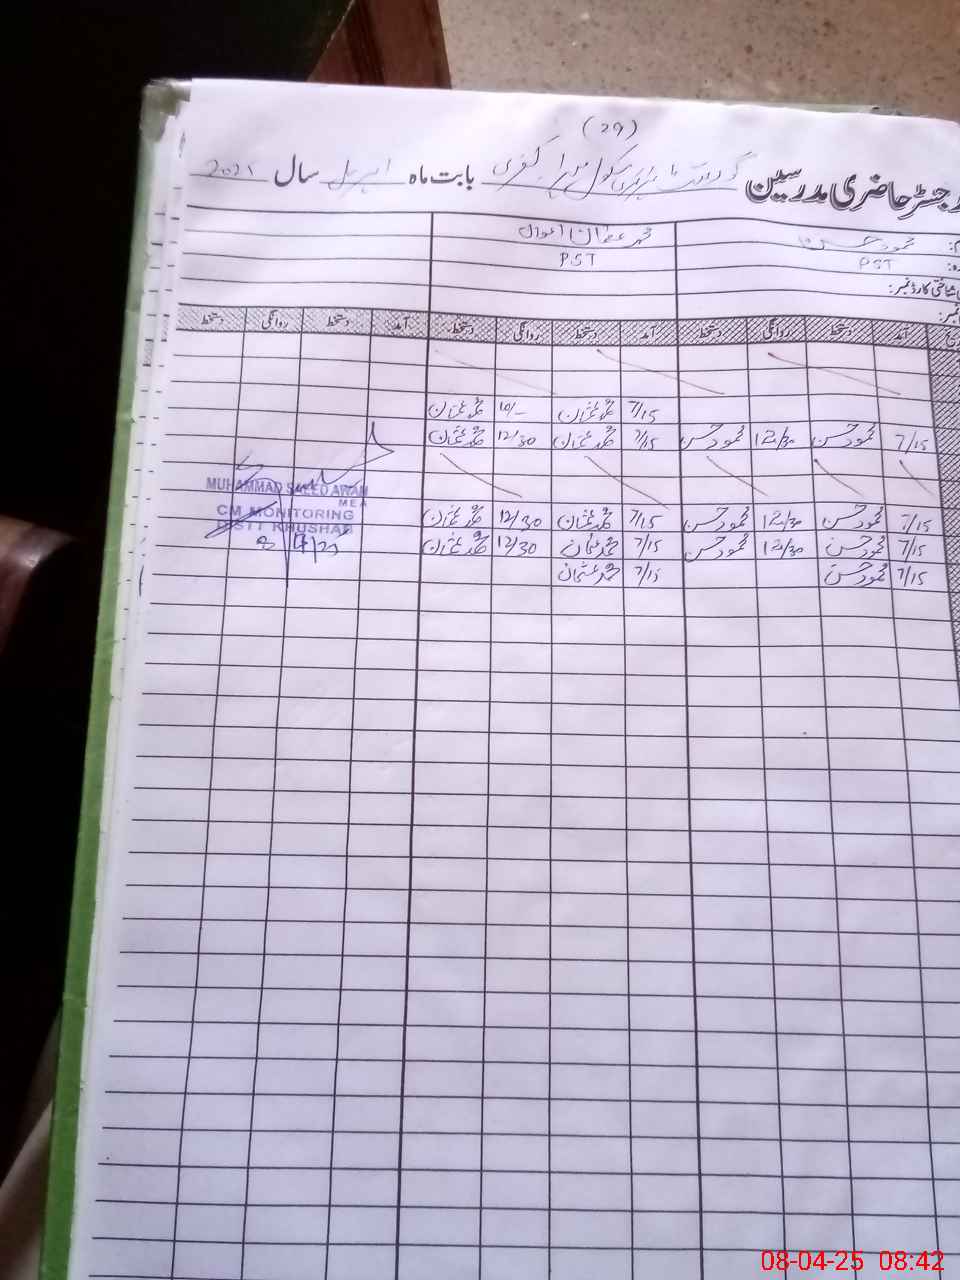 (29)
رجسٹر حاضری مدرسین گورنمنٹ پرائمری سکول میرا کفری بابت ماہ اپریل سال 2025
محمود حسن محمد عثمان اعوان
PST PST
شناختی کارڈ نمبر:
آمد دستخط روانگی دستخط آمد دستخط روانگی دستخط آمد دستخط روانگی دستخط
7/15 محمد عثمان 10/- محمد عثمان
7/15 محمود حسن 12/30 محمود حسن 7/15 محمد عثمان 12/30 محمد عثمان
7/15 محمود حسن 12/30 محمود حسن 7/15 محمد عثمان 12/30 محمد عثمان
7/15 محمود حسن 12/30 محمود حسن 7/15 محمد عثمان 12/30 محمد عثمان
7/15 محمود حسن 7/15 محمد عثمان
MUHAMMAD SAEED AWAN
MEA
CM MONITORING
DISTT KHUSHAB
08-04-25 08:42